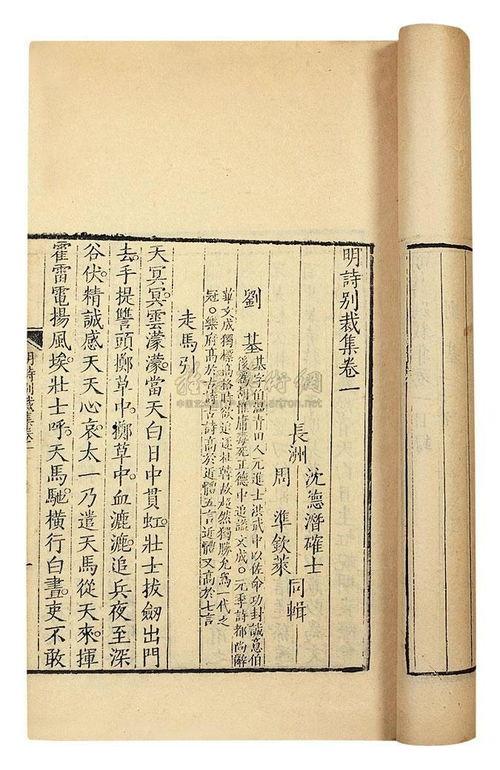 明詩別裁集卷一
長洲 沈德潛確士 周準欽萊 同輯
劉基 基字伯溫青田人元進士洪武中以佐命功封誠意伯
後為胡惟庸毒死正德中追諡文成。元季詩都尚辭
華文成獨標高格時欲追逐杜韓故超然獨勝允為一代之
冠。樂府高於古詩古詩高於近體五言近體又高於七言
走馬引
天冥冥雲濛濛。當天白日中貫虹。壯士拔劒出門
去。手提讐頭擲草中。擲草中。血漉漉。追兵夜至深
谷伏。精誠感天天心哀。太一乃遣天馬從天來。揮
霍雷電揚風埃。壯士呼。天馬馳。橫行白晝。吏不敢
明詩別裁集卷一